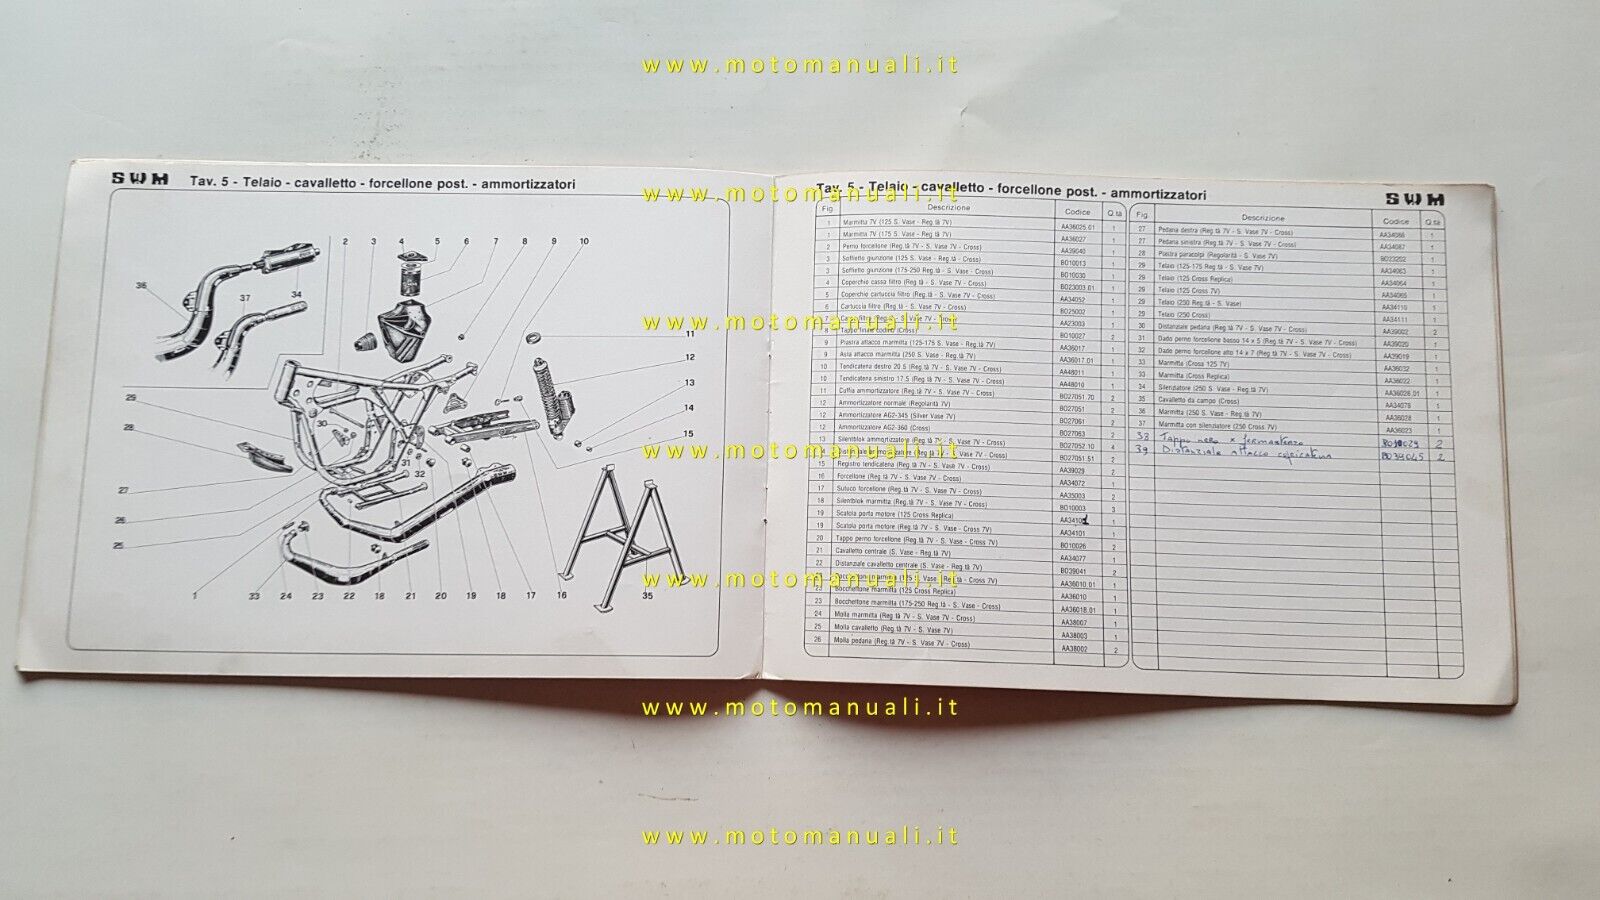 www.motomanuali.it
SWM Tav. 5 - Telaio - cavalletto - forcellone post. - ammortizzatori
2 3 4 5 6 7 8 9 10
36 37 34
11
12
13
14
15
29
28
30
31
32
27
26
25
1 33 24 23 22 18 21 20 19 18 17 16 35
Tav. 5 - Telaio - cavalletto - forcellone post. - ammortizzatori SWM
www.motomanuali.it
Fig. Descrizione Codice Q.tà
1 Marmitta 7V (125 S. Vase - Reg.tà 7V) AA36025.01 1
1 Marmitta 7V (175 S. Vase - Reg.tà 7V) AA36027 1
2 Perno forcellone (Reg.tà 7V - S. Vase 7V - Cross) AA39040 1
3 Soffietto giunzione (125 S. Vase - Reg.tà - Cross) BO10013 1
3 Soffietto giunzione (175-250 Reg.tà - S. Vase - Cross) BO10030 1
4 Coperchio cassa filtro (Reg.tà 7V - S. Vase 7V - Cross) BO23003.01 1
5 Coperchio cartuccia filtro (Reg.tà 7V - S. Vase - Cross) AA34052 1
6 Cartuccia filtro (Reg.tà 7V - S. Vase 7V - Cross) BO25002 1
7 Cassa filtro (Reg.tà 7V - S. Vase 7V - Cross) AA23003 1
www.motomanuali.it
8 Tappo finale codino (Cross) BO10027 2
9 Piastra attacco marmitta (125-175 S. Vase - Reg.tà 7V) AA36017 1
9 Asta attacco marmitta (250 S. Vase - Reg.tà 7V) AA36017.01 1
10 Tendicatena destro 20.5 (Reg.tà 7V - S. Vase 7V) AA48011 1
10 Tendicatena sinistro 17.5 (Reg.tà 7V - S. Vase 7V) AA48010 1
11 Cuffia ammortizzatore (Reg.tà 7V - S. Vase 7V) BO27051.70 2
12 Ammortizzatore normale (Regolarità 7V) BO27051 2
12 Ammortizzatore AG2-345 (Silver Vase 7V) BO27061 2
12 Ammortizzatore AG2-360 (Cross) BO27063 2
13 Silentblok ammortizzatore (Reg.tà 7V - S. Vase 7V - Cross) BO27052.10 4
www.motomanuali.it
BO27051.51 2
15 Registro tendicatena (Reg.tà 7V - S. Vase 7V - Cross) AA39029 2
16 Forcellone (Reg.tà 7V - S. Vase 7V - Cross) AA34072 1
17 Sutuco forcellone (Reg.tà 7V - S. Vase 7V - Cross) AA35003 2
18 Silentblok marmitta (Reg.tà 7V - S. Vase 7V - Cross) BO10003 3
19 Scatola porta motore (125 Cross Replica) 1
19 Scatola porta motore (Reg.tà 7V - S. Vase 7V - Cross 7V) AA34101 1
20 Tappo perno forcellone (Reg.tà 7V - S. Vase - Cross 7V) BO10026 2
21 Cavalletto centrale (S. Vase - Reg.tà 7V) AA34077 1
22 Distanziale cavalletto centrale (S. Vase - Reg.tà 7V) BO39041 2
www.motomanuali.it
23 Bocchettone marmitta (125 S. Vase - Reg.tà 7V - Cross 7V) AA36010.01 1
23 Bocchettone marmitta (125 Cross Replica) AA36010 1
23 Bocchettone marmitta (175-250 Reg.tà - S. Vase - Cross) AA36018.01 1
24 Molla marmitta (Reg.tà 7V - S. Vase 7V - Cross) AA38007 1
25 Molla cavalletto (Reg.tà 7V - S. Vase 7V) AA38003 1
26 Molla pedana (Reg.tà 7V - S. Vase 7V - Cross) AA38002 2
Fig. Descrizione Codice Q.tà
27 Pedana destra (Reg.tà 7V - S. Vase 7V - Cross) AA34086 1
27 Pedana sinistra (Reg.tà 7V - S. Vase 7V - Cross) AA34087 1
28 Piastra paracolpi (Regolarità - S. Vase 7V) BO23202 1
29 Telaio (125-175 Reg.tà 7V - S. Vase) AA34063 1
29 Telaio (125 Cross Replica) AA34064 1
29 Telaio (125 Cross 7V) AA34065 1
29 Telaio (250 Reg.tà - S. Vase) AA34110 1
29 Telaio (250 Cross) AA34111 1
30 Distanziale pedana (Reg.tà 7V - S. Vase 7V - Cross 7V) AA39002 2
31 Dado perno forcellone basso 14 x 5 (Reg.tà 7V - S. Vase 7V - Cross) AA39020 1
32 Dado perno forcellone alto 14 x 7 (Reg.tà 7V - S. Vase 7V - Cross) AA39019 1
33 Marmitta (Cross 125 7V) AA36032 1
33 Marmitta (Cross Replica) AA36022 1
34 Silenziatore (250 S. Vase - Reg.tà 7V) AA36026.01 1
35 Cavalletto da campo (Cross) AA34078 1
36 Marmitta (250 S. Vase - Reg.tà 7V) AA36028 1
37 Marmitta con silenziatore (250 Cross 7V) AA36023 1
38 Tappo nero x fermasterzo 2
39 Distanziale attacco copricatena BO39045 2
www.motomanuali.it
www.motomanuali.it